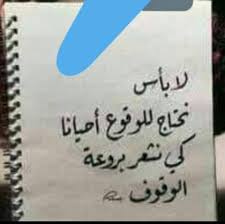 لا بأس
نحتاج للوقوع أحيانا
كي نشعر بروعة
الوقوف